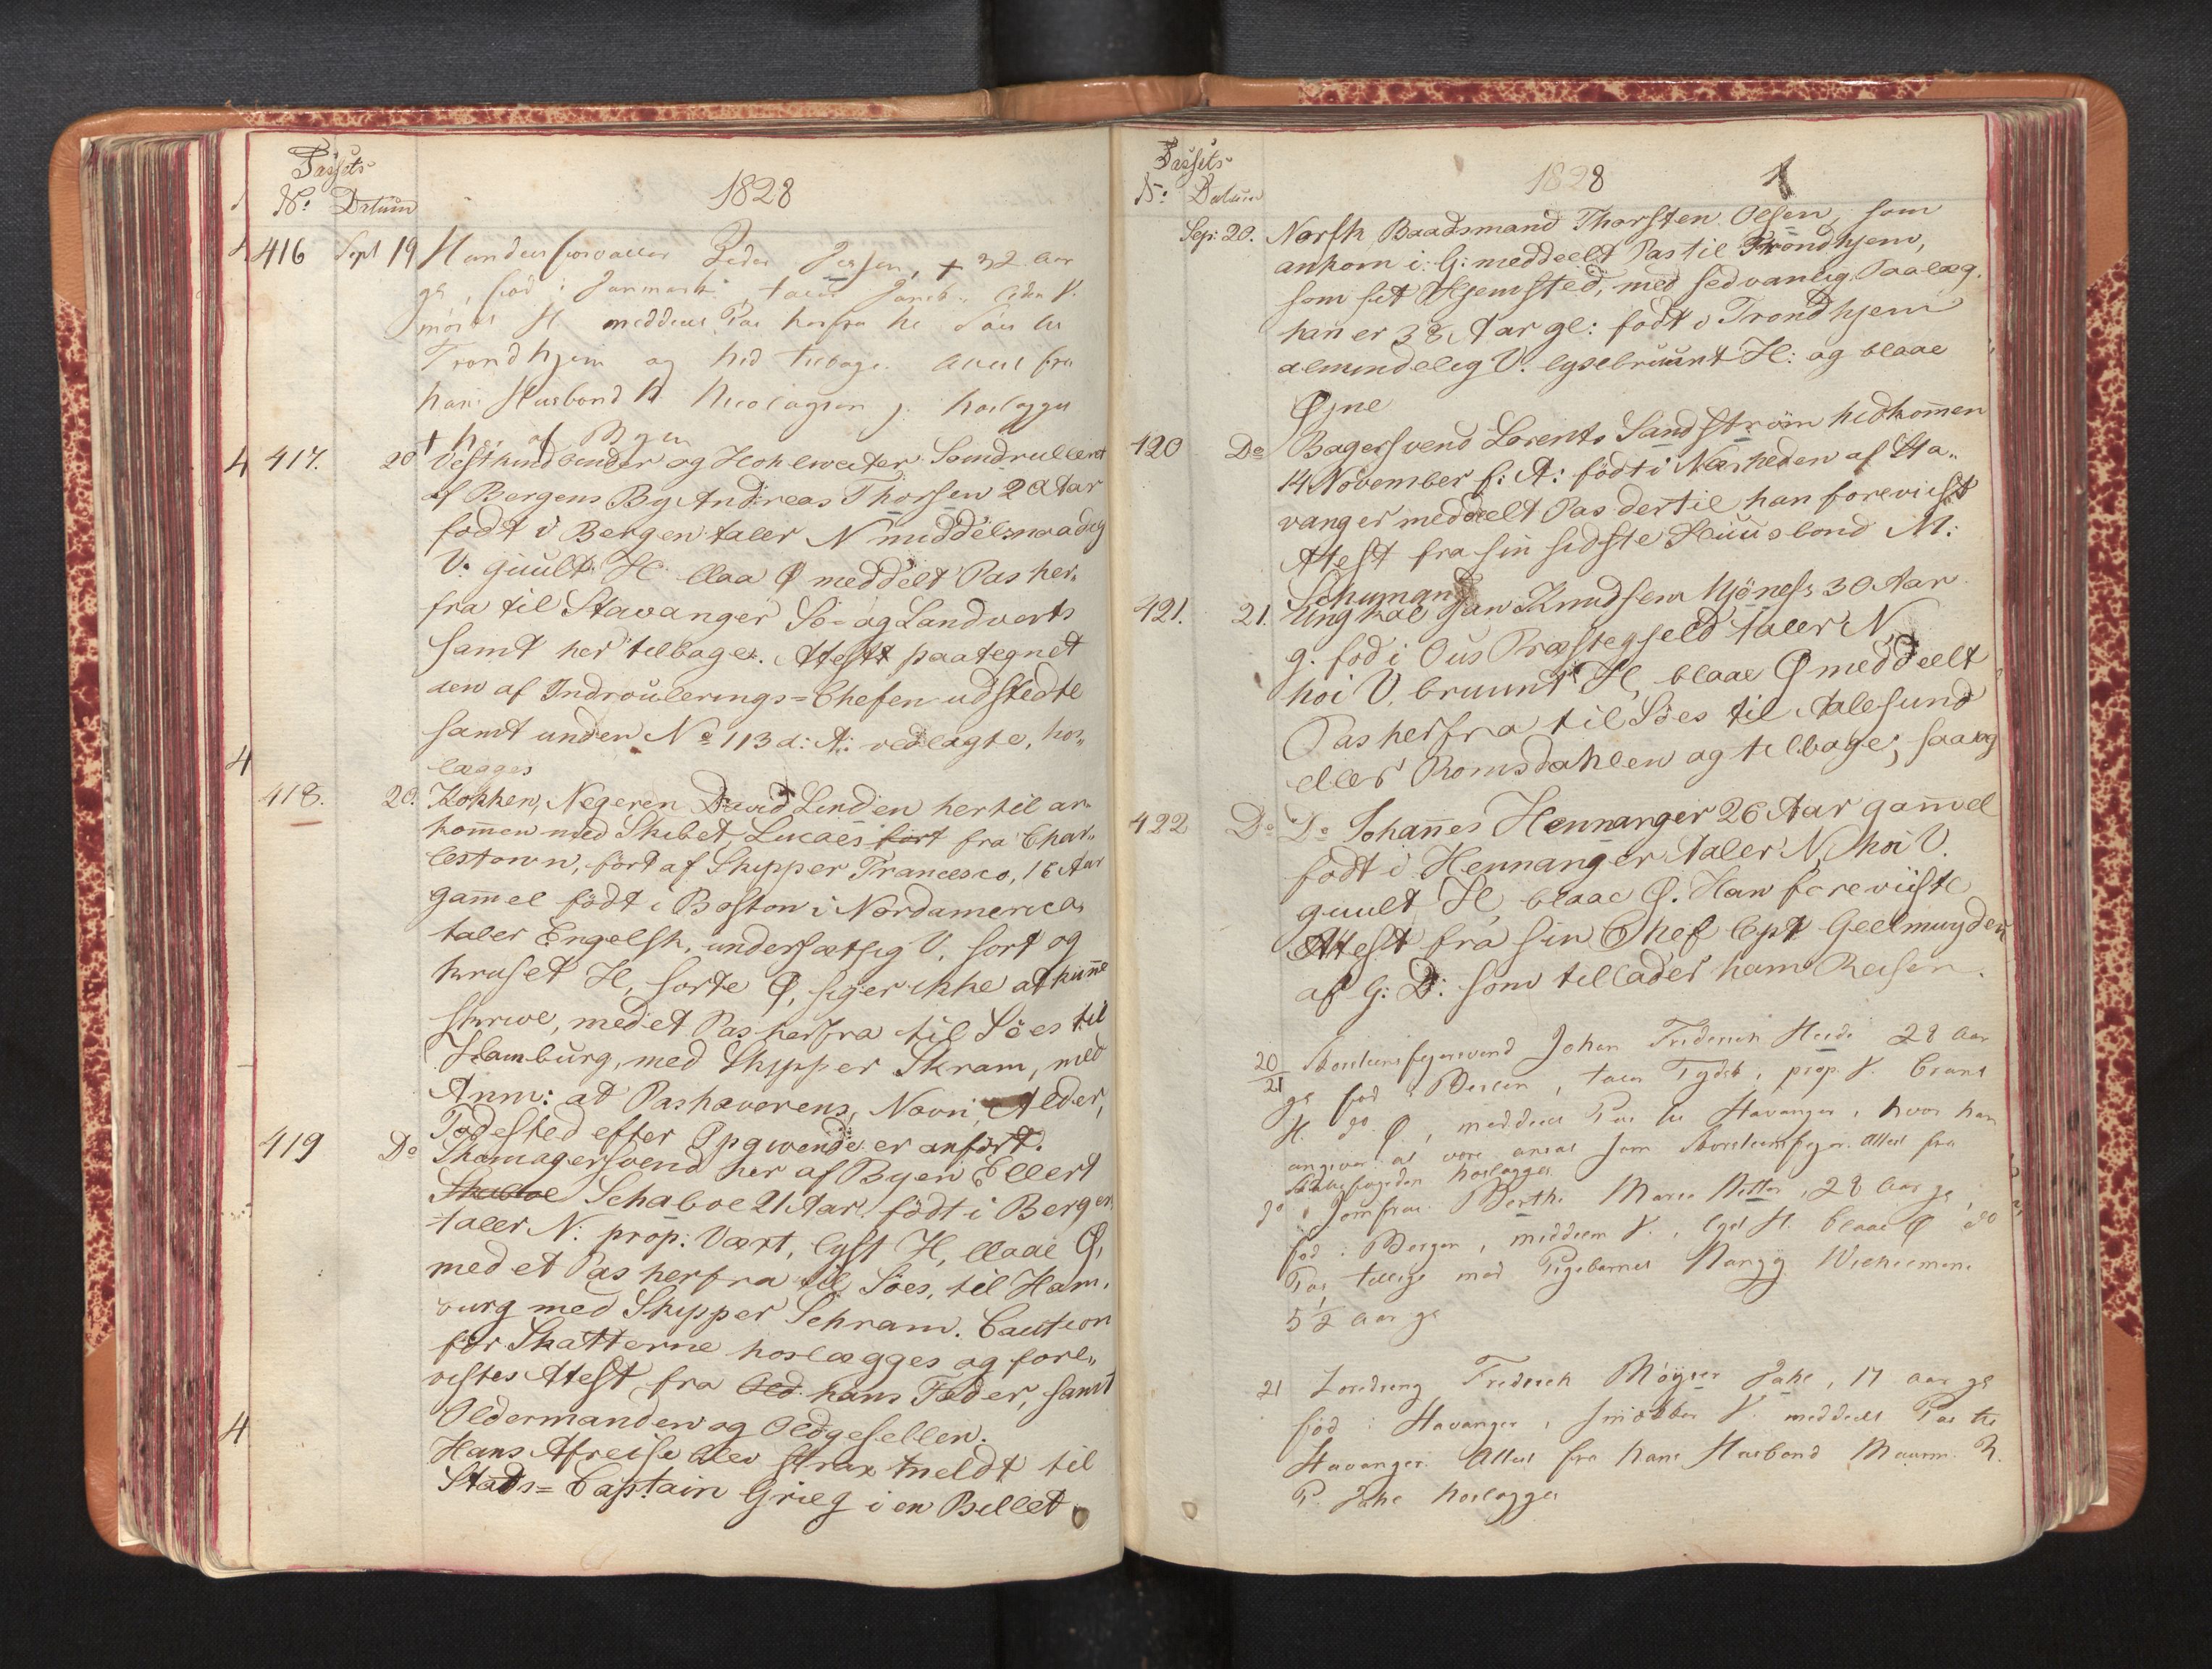 Passets
No. Datum
1828
416 Sept 19 Handelsforvalter Peder Jessen, + 32 Aar
gl, fød i Danmark, taler Dansk, liden V.
mørkt H. meddeelt Pas herfra til Søes til
Trondhjem og hid tilbage. Attest fra
hans Husbond H Nicolaysen j. hoslægges
+ her af Byen
417. 20 Vesthindbinder og Hohlweiter Somdrulleret
af Bergens By Andreas Thorsen 20 Aar
født i Bergen taler N middelmaadig
V. guult H. blaa Ø meddelt Pas her„
fra til Stavanger Sö- og Landverts
samt her tilbage. Attest paategnet
den af Indroulerings=Chefen udstedte
samt under No 113 d: A: vedlagte, hos„
lægges
418. 20. Kokken, Negeren David Linden hertil an„
kommen med Skibet Lucaes fört fra Char„
lestown, fört af Skipper Francesco, 16 Aar
gammel født i Boston i Nordamerica
taler Engelsk, undersætsig V. sort og
kruset H, sorte Ø, siger ikke at kunne
skrive, medet Pas herfra til Söes til
Hamburg, med Skipper Skram, med
Anm: at Pashaverens, Navn, Alder,
Födested efter Opgivende er anfört.
419 Do Skomagersvend her af Byen Ellert
Skaboe Schaboe 21 Aar født i Bergen
taler N: prop: Vært, lyst H, blaae Ø,
med et Pas herfra til Söes, til Ham„
burg med Skipper Schram. Caution
for Skatterne hoslægges og fore„
vistes Atest fra Old hans Fader, samt
Oldermanden og Oldgesellen.
Hans Afreise blev strax meldt til
Stads=Captain Grieg i en Billet
Passets
No. Datum
1828
Sep: 20. Norsk Baadsmand Thorsten Olsen, som
ankom i: G: meddeelt Pas til Trondhjem,
som sit Hjemsted, med sedvanlig Paalæg.
han er 38 Aar gl: født i Trondhjem
almindelig V. lysebruunt H: og blaae
Øjne
420 Do Bagersvend Lorents Sandström hidkommen
14 November f: A: født i Nærheden af Sta„
vanger meddeelt Pas dertil han foreviist
Atest fra sin sidste Huusbond M:
Schuman
421. 21. Ungkal Jan Knudsen Mjönes 30 Aar
g. fød i Ous Præstegjeld taler N,
hoi V, bruunt H, blaae Ø meddeelt
Pas herfra til Söes til Aalesund
eller Romsdahlen og tilbage, saavg
422 Do Do Johannes Hennanger 26 Aar gammel
født i Hennanger taler N, hoi V.
guult H, blaae Ø. Han foreviiste
Attest fra sin Chef Cpt Geelmuyden
af G: D: som tillader ham Reisen.
20/21 Skorsteensfejersvend Johan Friderich Heide 28 Aar
gl fød i Berlin, taler Tydsk, prop. V. bruunt
H. do Ø, meddeelt Pas til Stavanger, hvor han
angiver at være ansat som Skorsteensfejer. Attest fra
hoslægges
do Jomfrue Berthe Marie Netter, 28 Aar gl
fød i Bergen, middelm V., lyst H. blaae Ø do
Pas tillige med Pigebarnet Nangy Wiehrmann
5 1/2 Aar gl
21 Loredreng Fredrich Møyer Jahe, 17 Aar gl
fød i Stavanger, smækker V. meddeelt Pas til
Stavanger. Attest fra hans Husbond Muurm. R.
P. Jahe hoslægges